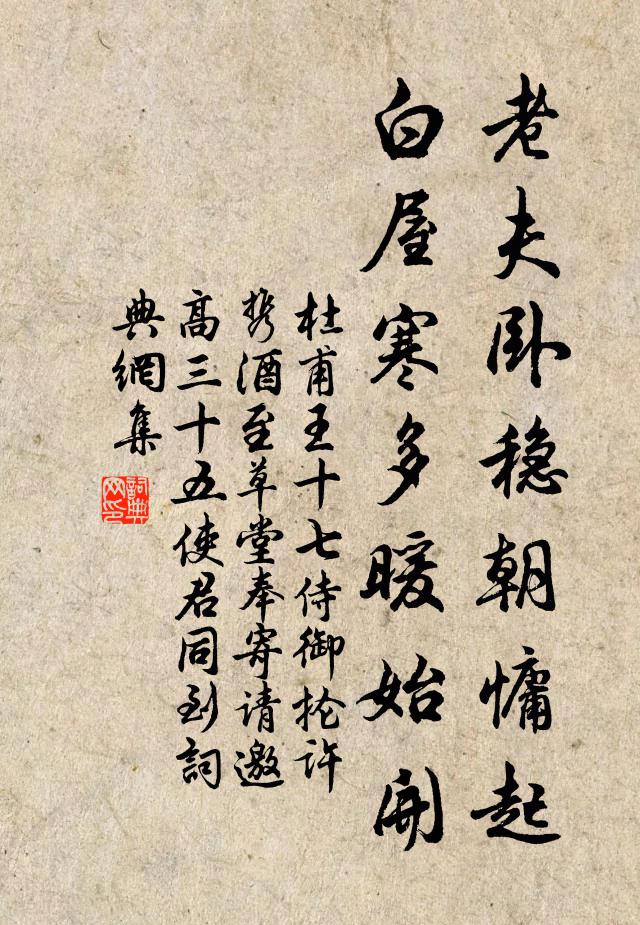 老夫卧稳朝慵起
白屋寒多暖始開
杜甫王十七侍御抡許
携酒至草堂奉寄請邀
高三十五使君同到詞
典網集
詞典
网印